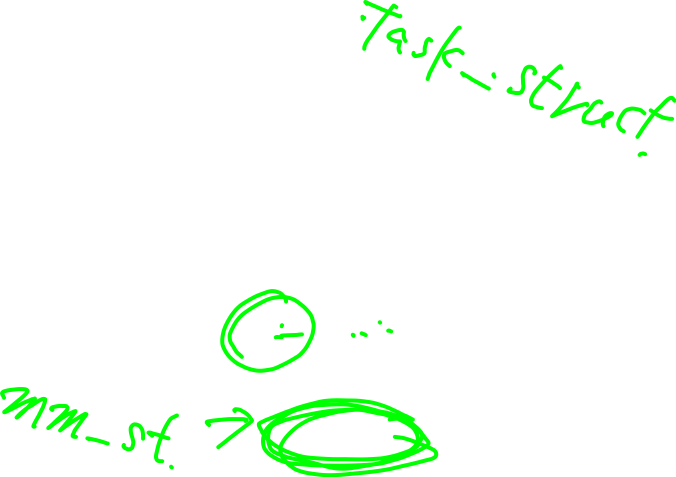 Task_struct.
mm_st.